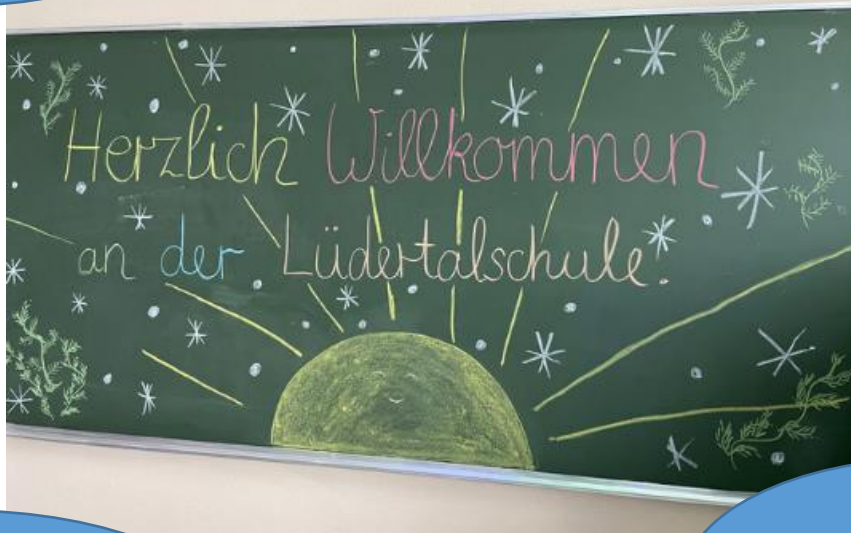 Herzlich Willkommen
an der Lüdertalschule.